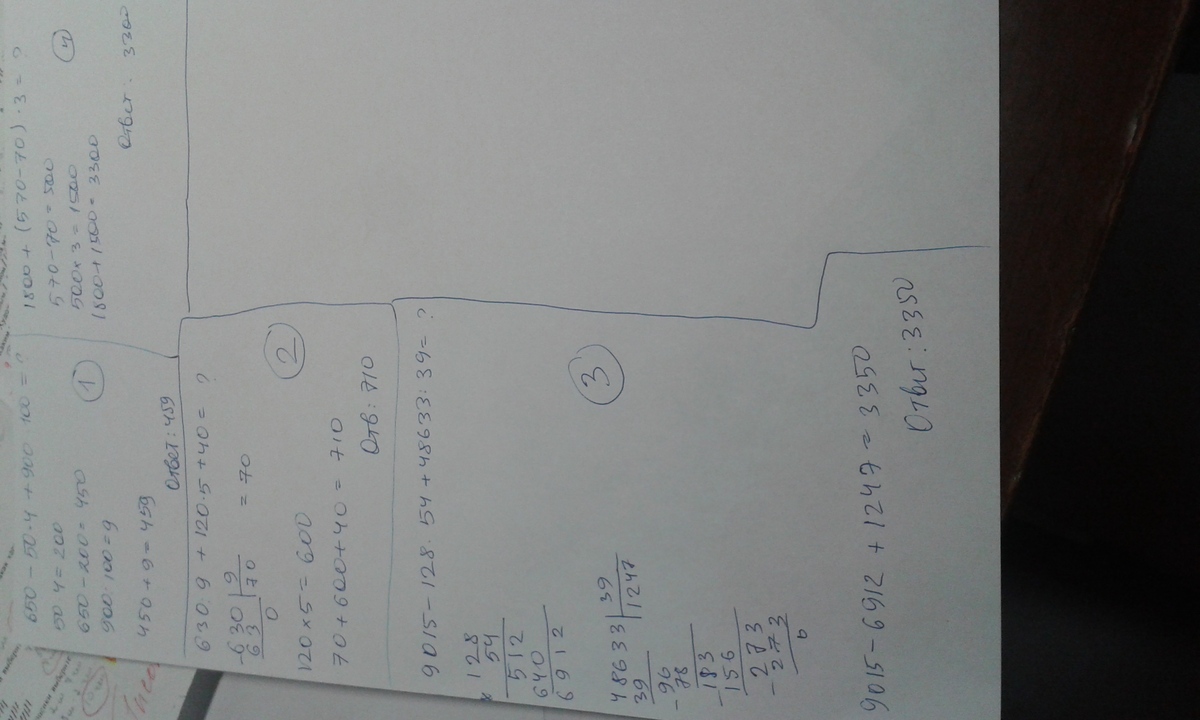 650 - 50 · 4 + 900 : 100 = ?
50 · 4 = 200
650 - 200 = 450
900 : 100 = 9
450 + 9 = 459
Ответ: 459
1
1800 + (570 - 70) · 3 = ?
570 - 70 = 500
500 × 3 = 1500
1800 + 1500 = 3300
Ответ: 3300
4
630 : 9 + 120 · 5 + 40 = ?
-630 | 9
63 | 70 = 70
0
120 × 5 = 600
70 + 600 + 40 = 710
Отв: 710
2
9015 - 128 · 54 + 48633 : 39 = ?
× 128
54
512
640
6912
48633 | 39
39 | 1247
- 96
78
- 183
156
- 273
273
0
3
9015 - 6912 + 1247 = 3350
Ответ: 3350